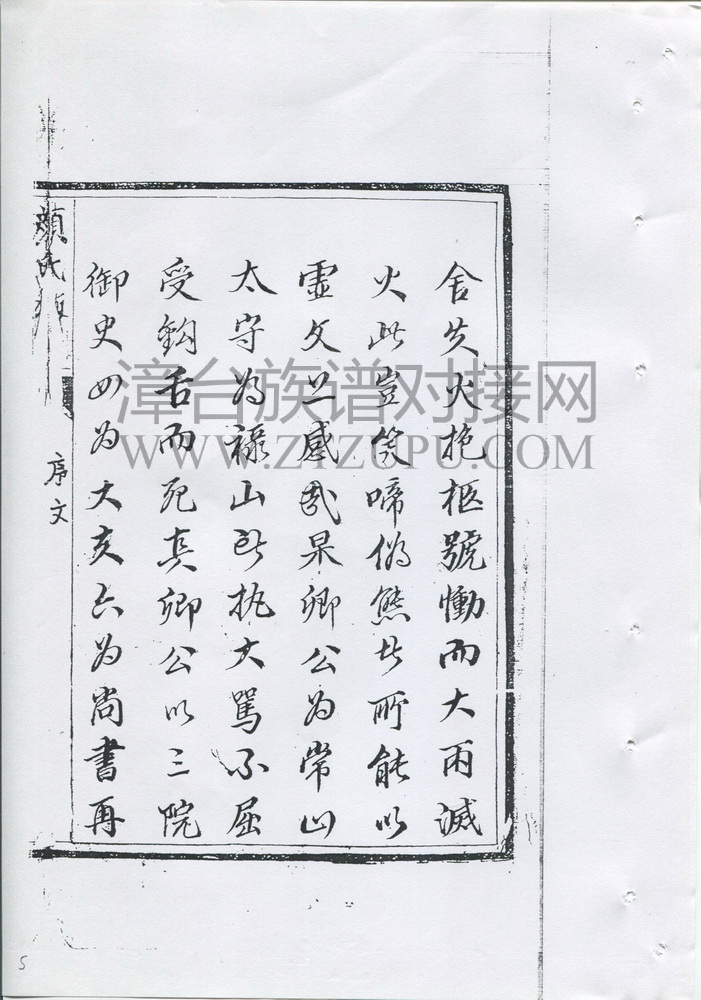 舍失火抱柩號慟而大雨滅
火此豈笑啼偽態者所能以
虛文上感哉杲卿公为常山
太守为祿山所执大罵不屈
受鈎舌而死真卿公以三院
御史四为大夫六为尚書再
顏氏
序文
漳台族谱对接网
WWW.ZTZUPU.COM
5